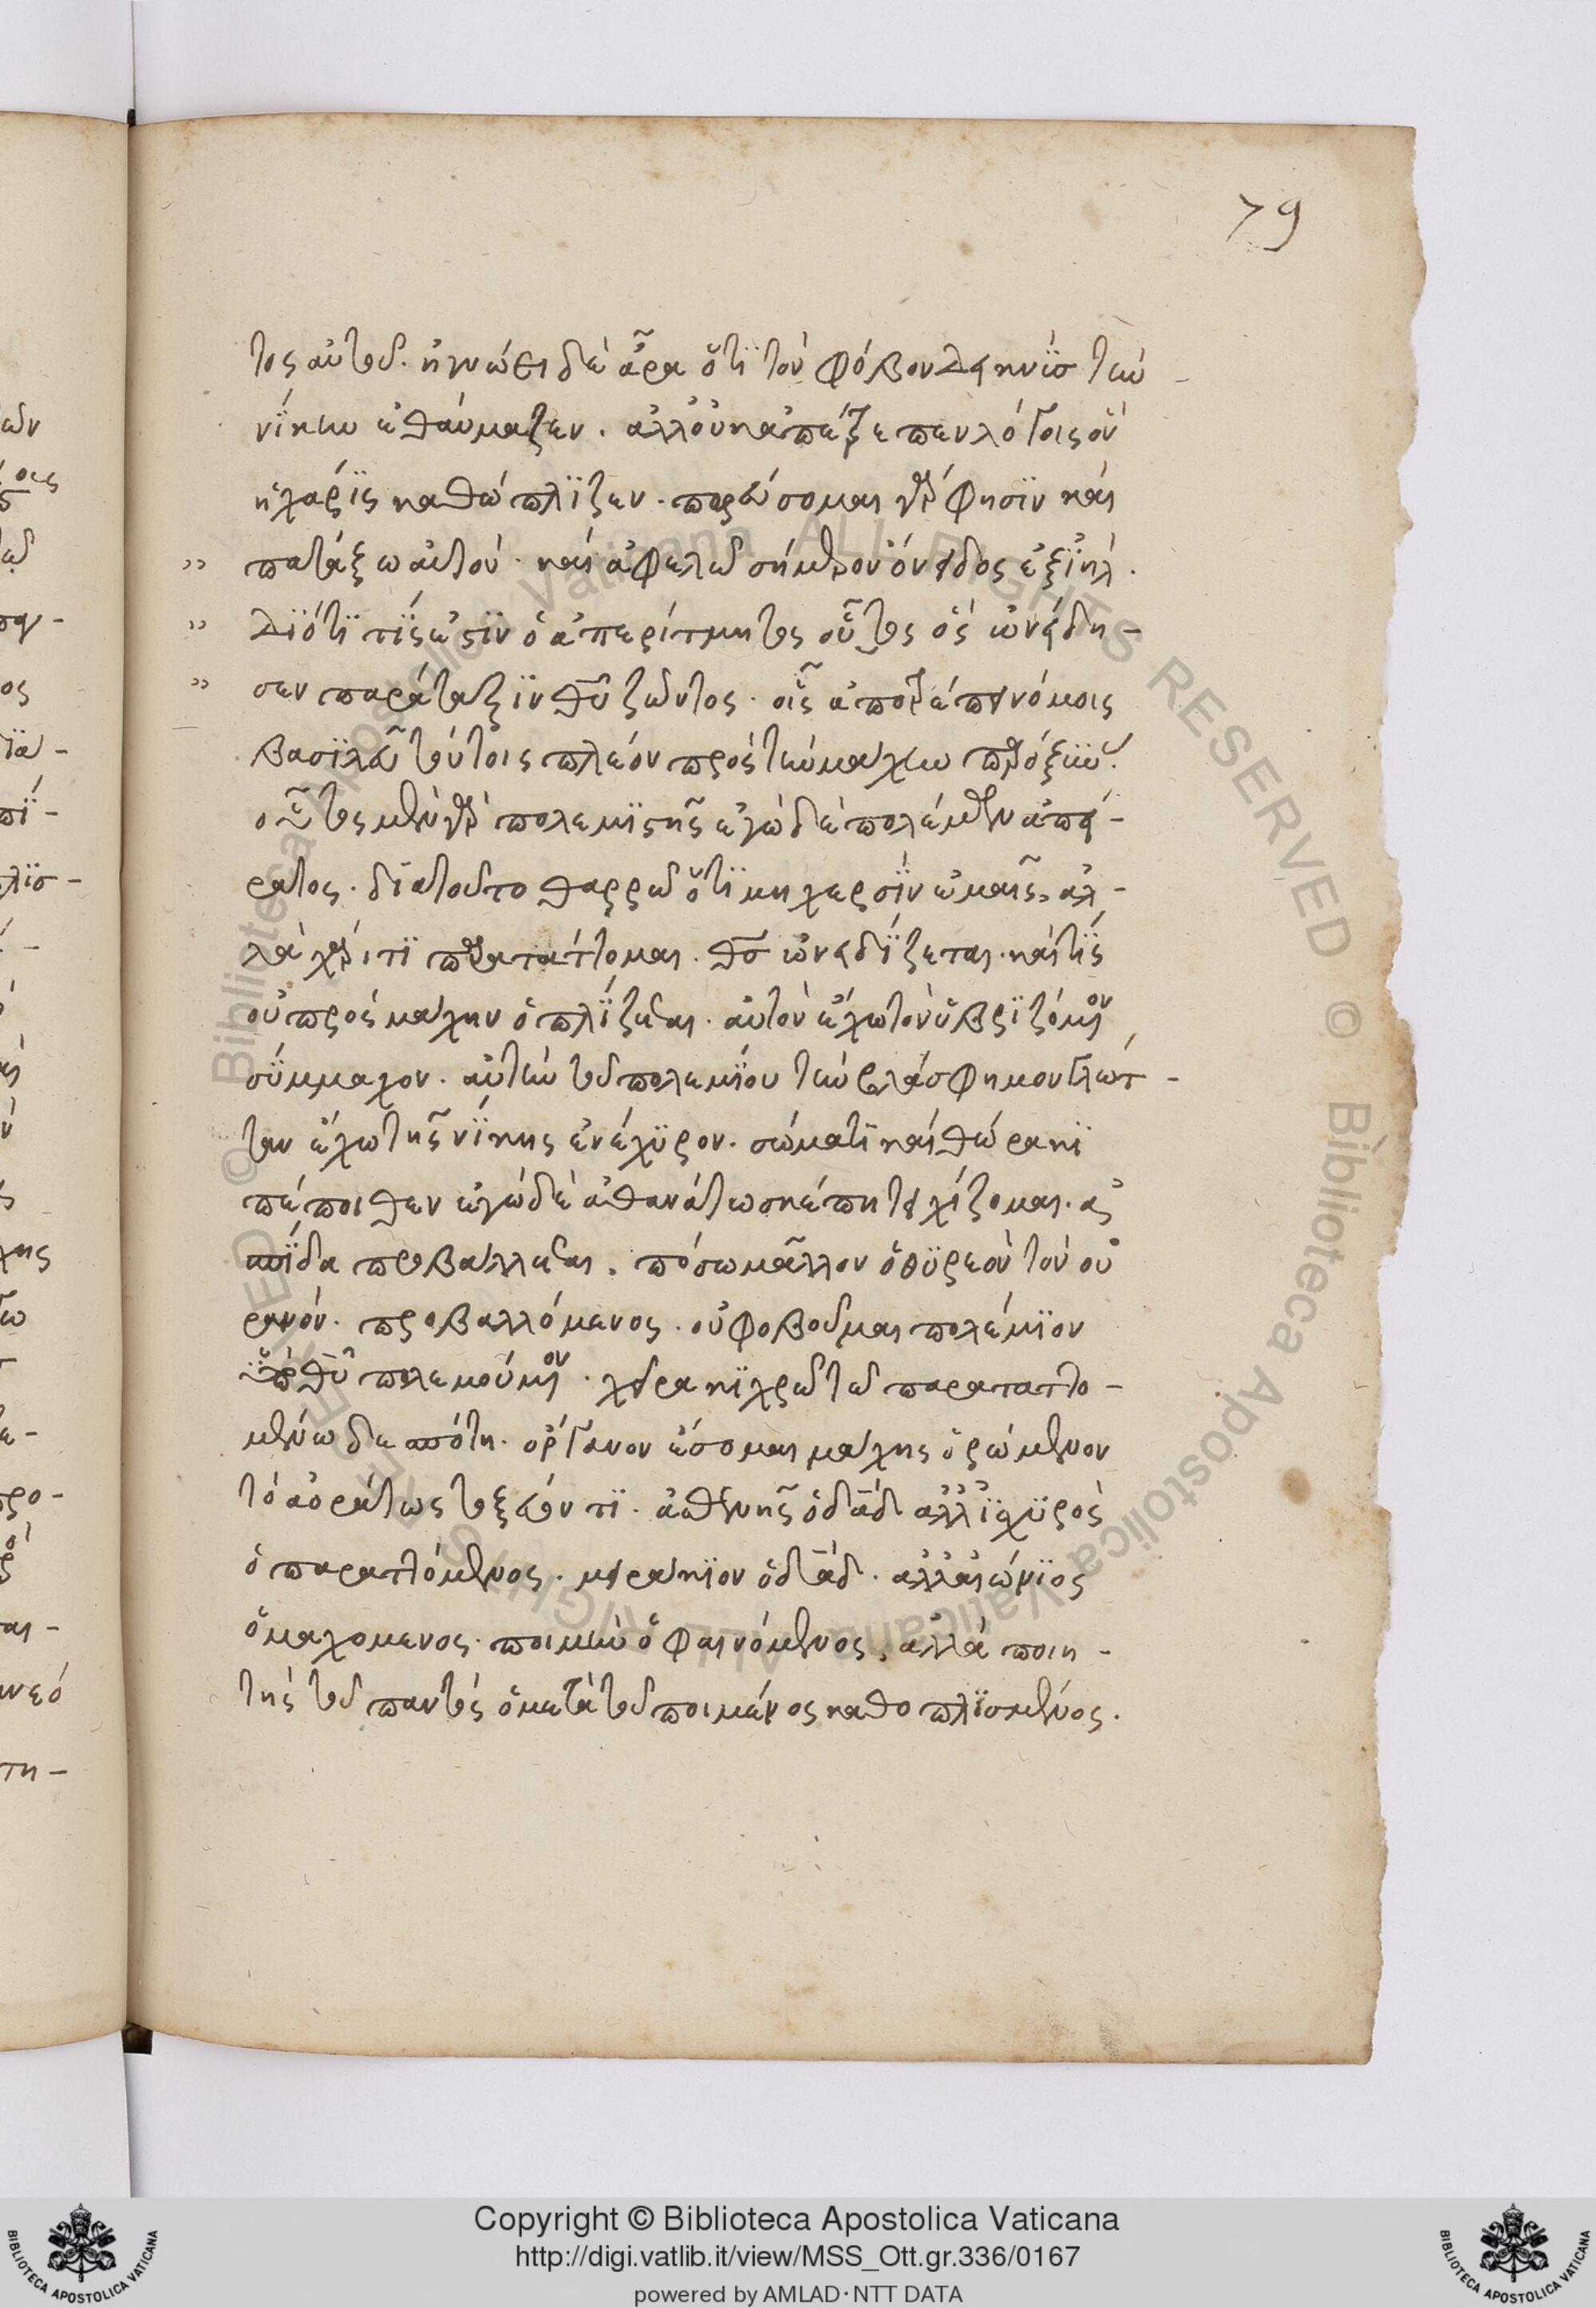 79
τος αὐτοῦ. ἠγνώει δὲ ἆρα ὅτι τὸν φόβον δεικνὺς τὴν
νίκην ἐθαύμαζεν. ἀλλ' οὐκ ἀπέτρεπεν λόγοις ὃν
ἡ χάρις καθώπλιζεν. πορεύσομαι γὰρ φησὶν καὶ
›› πατάξω αὐτόν. καὶ ἀφελῶ σήμερον ὄνειδος ἐξ ἰηλ.
›› Διότι τίς ἐστιν ὁ ἀπερίτμητος οὗτος ὃς ὠνείδι-
›› σεν παράταξιν θυ ζῶντος. οἷς ἀποτρέπειν νόμοις
βασιλεῦ τούτοις πλέον πρὸς τὴν μάχην
οὗτος μὲν γὰρ πολεμιστὴς ἐγὼ δὲ πολέμων ἀπεί-
ρατος. διατοῦτο θαρρῶ ὅτι μὴ χερσὶν ἐμαῖς, ἀλ-
λὰ χάριτι παρατάττομαι. θς ὠνειδίζεται. καὶ τίς
οὐ πρὸς μάχην ὁπλίζεται. αὐτὸν ἔχω τὸν ὑβριζόμενον
σύμμαχον. αὐτὴν τοῦ πολεμίου τὴν βλάσφημον γλῶτ-
ταν ἔχω τῆς νίκης ἐνέχυρον. σώματι καὶ θώρακι
πέποιθεν ἐγὼ δὲ ἀθανάτω σκέπη τειχίζομαι. ἀσ
πίδα προβάλλεται. πόσω μᾶλλον ὁ θυρεὸν τὸν οὐ
ρανόν. προβαλλόμενος. οὐ φοβοῦμαι πολέμιον
ὑπὲρ θυ πολεμούμενον. χειρακι χρῶ τῶ παραταττο-
μένω δεσπότη. ὄργανον ἔσομαι μάχης ὁρώμενον
τῶ ἀοράτως τοξεύοντι. ἀσθενὴς ὁ δαδ ἀλλ' ἰσχυρὸς
ὁ παραττόμενος. μειράκιον ὁ δαδ. ἀλλ' αἰώνιος
ὁ μαχόμενος. ποιμὴν ὁ φαινόμενος, ἀλλὰ ποιη-
τὴς τοῦ παντὸς ὁ μετὰ τοῦ ποιμένος καθοπλισμένος.
Copyright © Biblioteca Apostolica Vaticana
http://digi.vatlib.it/view/MSS_Ott.gr.336/0167
powered by AMLAD·NTT DATA